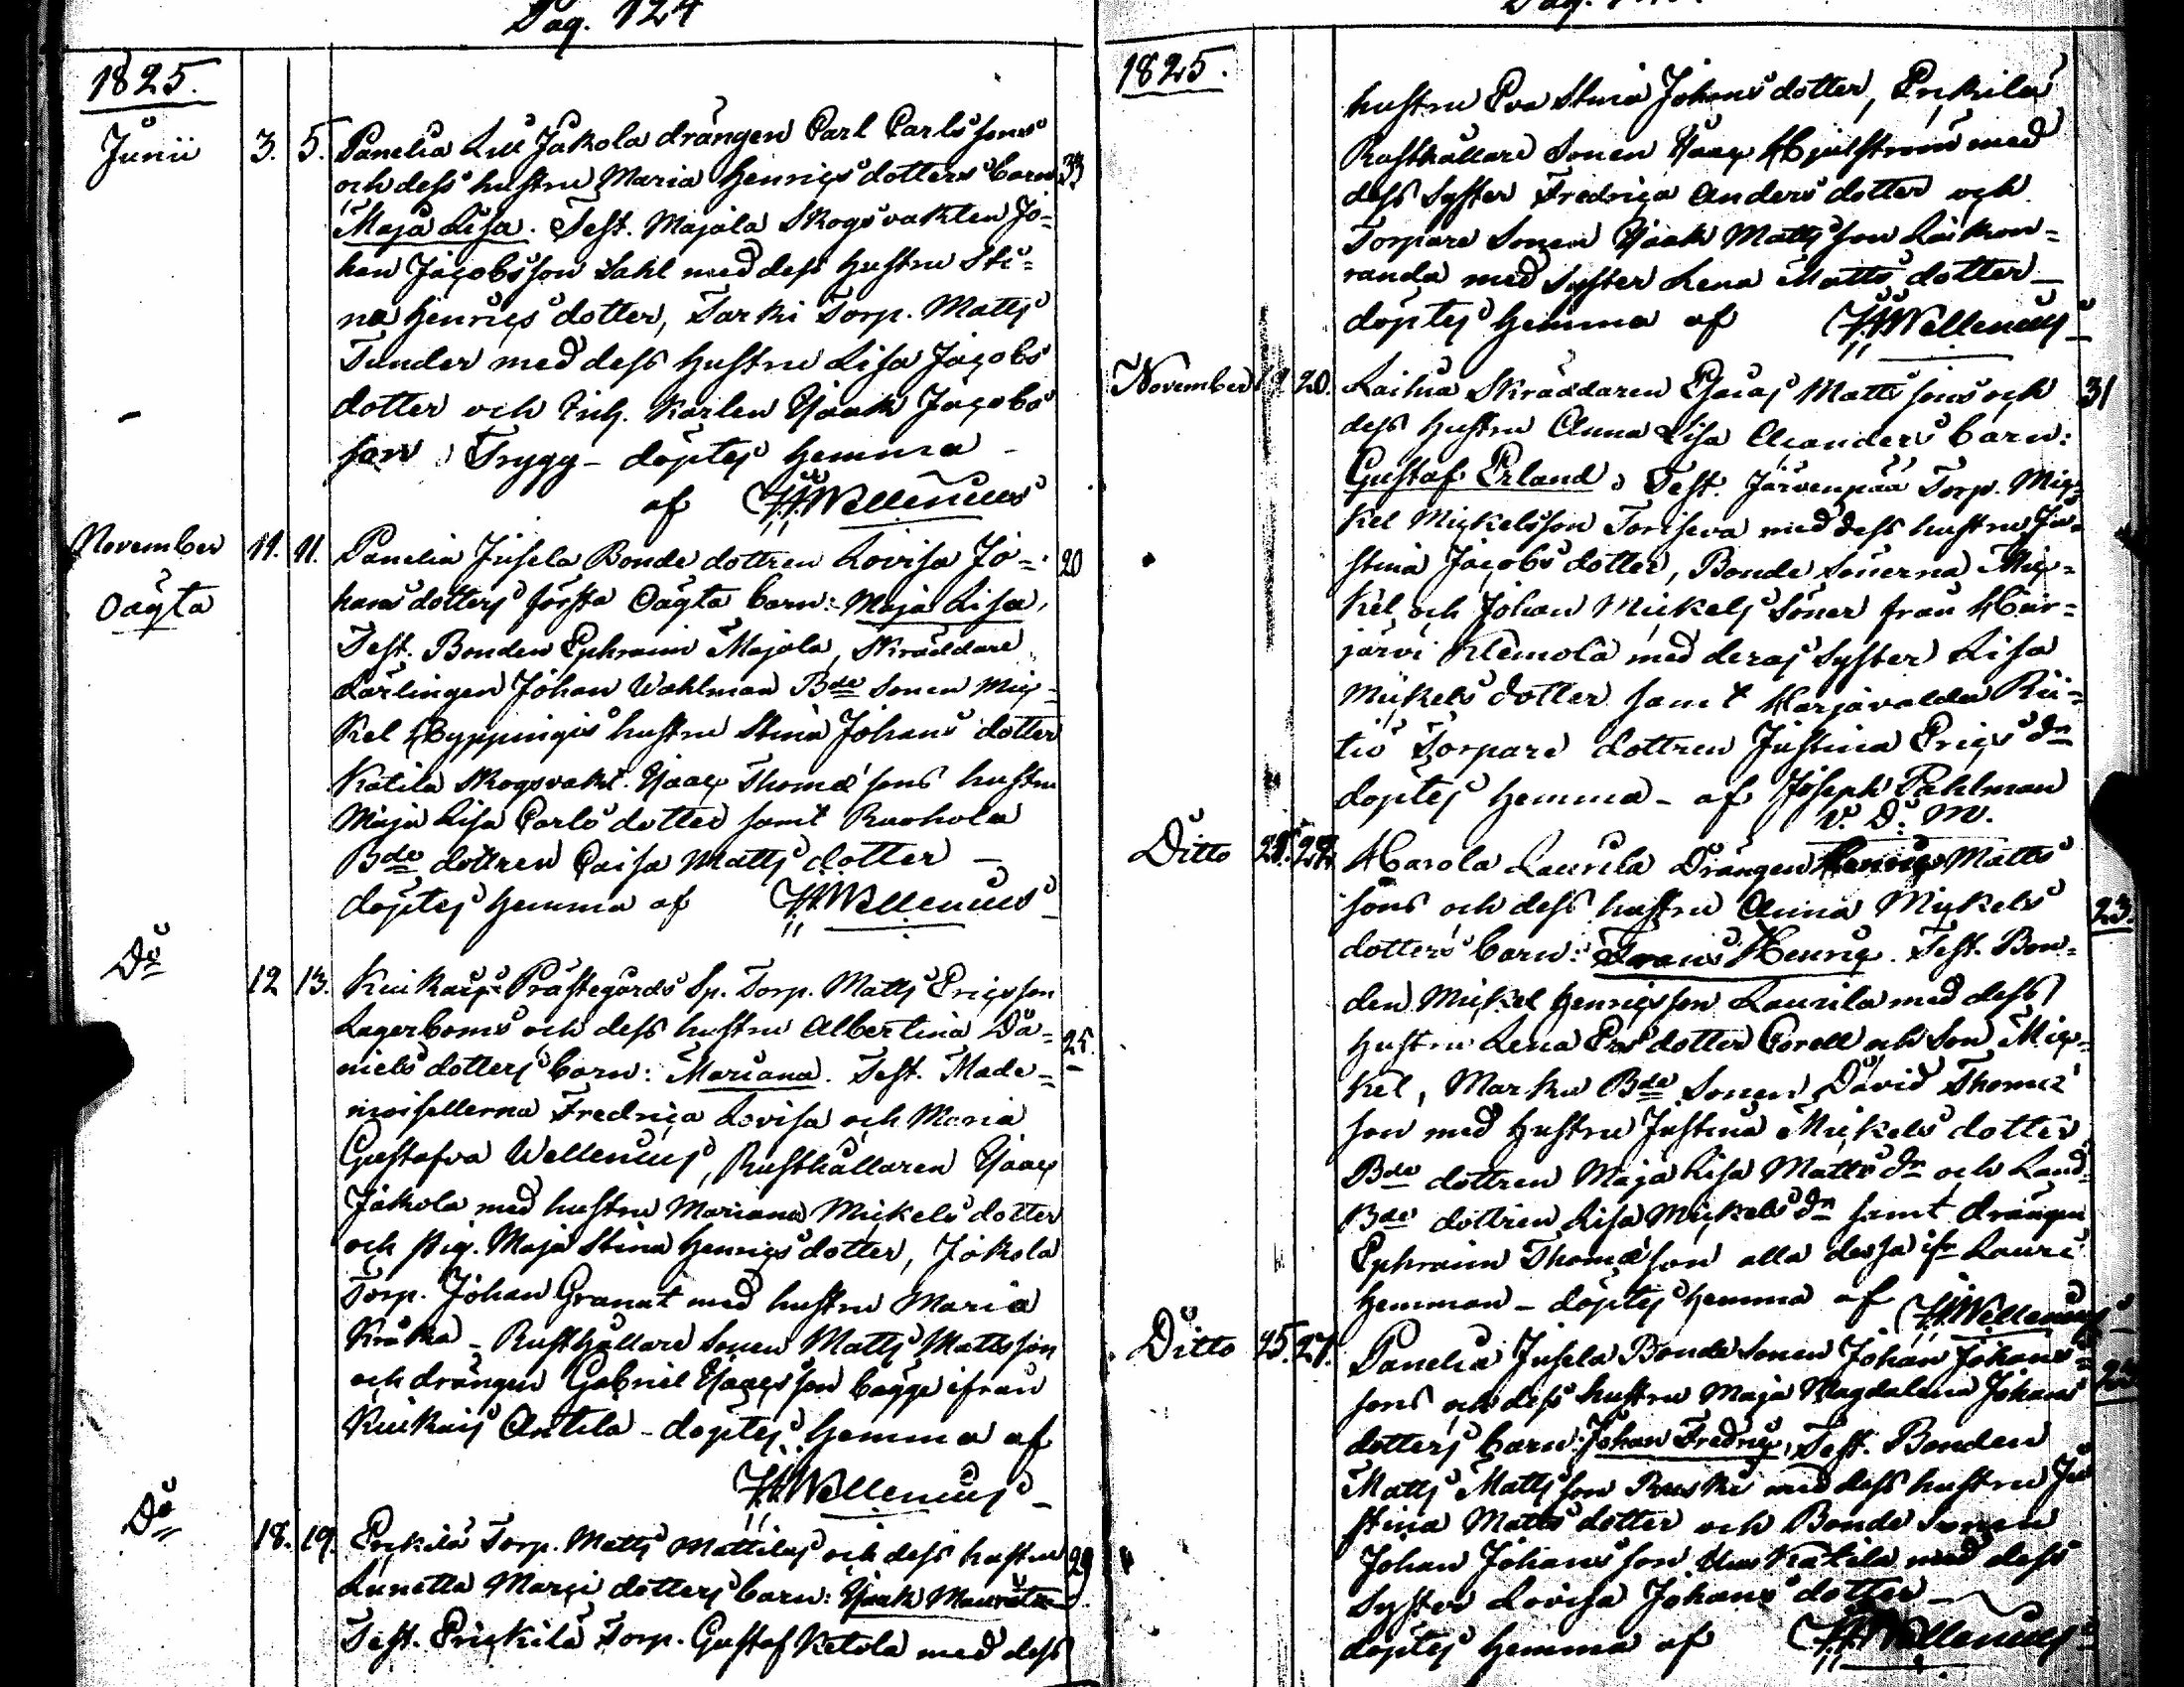 Pag. 124
1825.
Junii 3. 5. Panelia Lill Jakola drängen Carl Carlssons
och dess hustru Maria Henricsdotters barn 33
Maja Lisa. Test. Majala Skogsvakten Jo=
han Jacobsson Sahl med dess hustru Sti=
na Henricsdotter, Sarki Torp. Matts
Tunder med dess hustru Lisa Jacobs
dotter och Inh. Karlen Isaak Jacobs
son Trygg - döptes hemma
af H. Wellenius
November 11. 11. Panelia Jusela Bonde dottren Lovisa Jo=
Oägta
hans dotters första Oägta barn: Maja Lisa, 20
Test. Bonden Ephraim Majola, Skräddare
Lärlingen Johan Wahlman Bde Sonen Mic=
kel Hyppingis hustru Stina Johans dotter
Katila Skogsvakt. Isaac Thomæ sons hustru
Maja Lisa Carls dotter samt Ruohola
Bde dottren Caisa Matts dotter
döptes hemma af H. Wellenius
Do 12 13. Kiukais Prästegårds Sp. Torp. Matts Ericsson
Lagerboms och dess hustru Albertina Da=
niels dotters barn: Mariana. Test. Made= 25.
moisellerna Fredrica Lovisa och Maria
Gustafva Wellenius, Rusthållaren Isaac
Jakola med hustru Mariana Mickels dotter
och pig. Maja Stina Henrics dotter, Jakola
Torp. Johan Granat med hustru Maria
Kråka - Rusthållare Sonen Matts Mattsson
och drängen Gabriel Isaacs son bägge ifrån
Kiukais Antila - döptes hemma af
H. Wellenius
Do 18. 19. Erckilä Torp. Matts Mattilas och dess hustru
Lunetta Marci dotters barn: Isaak Mauritz 29
Test. Erickilä Torp. Gustaf Ketola med dess
1825.
hustru Eva Stina Johans dotter, Erkilä
Rusthållare Sonen Isaac Hjulström med
dess Syster Fredrica Anders dotter och
Torpare Sonen Isaak Matts son Laikon=
randa med Syster Lena Matts dotter
döptes hemma af H. Wellenius
November 19. 20. Laihia Skräddaren Esaias Matts sons och 31
dess hustru Anna Lisa Aleanders barn:
Gustaf Erland, Test. Järvenpää Torp. Mic=
kel Mickelsson Toriseva med dess hustru Ju=
stina Jacobs dotter, Bonde Sönerna Mic=
kel och Johan Mickels Söner från Har=
järvi Klemola med deras Syster Lisa
Mickels dotter samt Harjavalda Rii=
tiö Torpare dottren Justina Erics dr
döptes hemma - af Joseph Pahlman
V. D. M.
Ditto Harola Laurila Drängen Henric Matts
sons och dess hustru Anna Mickels 23.
dotters barn: Frans Henric. Test. Bon=
den Mickel Henricsson Laurila med dess
hustru Lena Ers dotter Corell och Son Mic=
kel, Marku Bde Sonen David Thomæ
son med hustru Justina Mickels dotter
Bde dottren Maja Lisa Matts dr och Land
Bde dottren Lisa Mickels dr samt drängen
Ephraim Thomæson alla dessa ifr Lauri
hemman - döptes hemma af H. Wellenius
Ditto 25. 27. Panelia Jusela Bonde Sonen Johan Johans=
sons och dess hustru Maja Magdalena Johans
dotters barn: Johan Fredric, Test. Bonden
Matts Matts son Rauski med dess hustru Ju
stina Matts dotter och Bonde Sonen
Johan Johans son Katila med dess
Syster Lovisa Johans dotter
döptes hemma af H. Wellenius